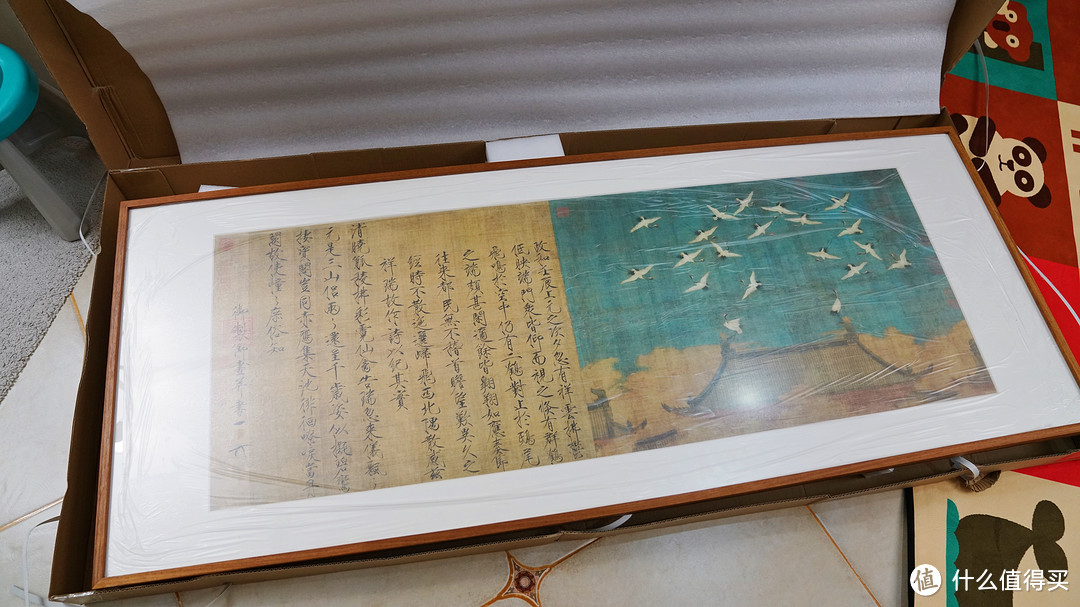 政和壬辰上元之次夕忽有祥雲拂鬱
低映端門眾皆仰而視之倏有群鶴
飛鳴於空中仍有二鶴對止於鴟尾
之端頗甚閑適餘皆翱翔如應奏節
往來都民無不稽首瞻望歎異久之
經時不散迤邐歸飛西北隅散感茲
祥瑞故作詩以紀其實
清曉觚稜拂彩霓仙禽告瑞忽來儀飄〻
元是三山侶兩〻還呈千歲姿似擬碧鸞
棲寶閣豈同赤鴈集天池徘徊嘹唳當丹
闕故使憧〻庶俗知
御製御畫并書
值 什么值得买